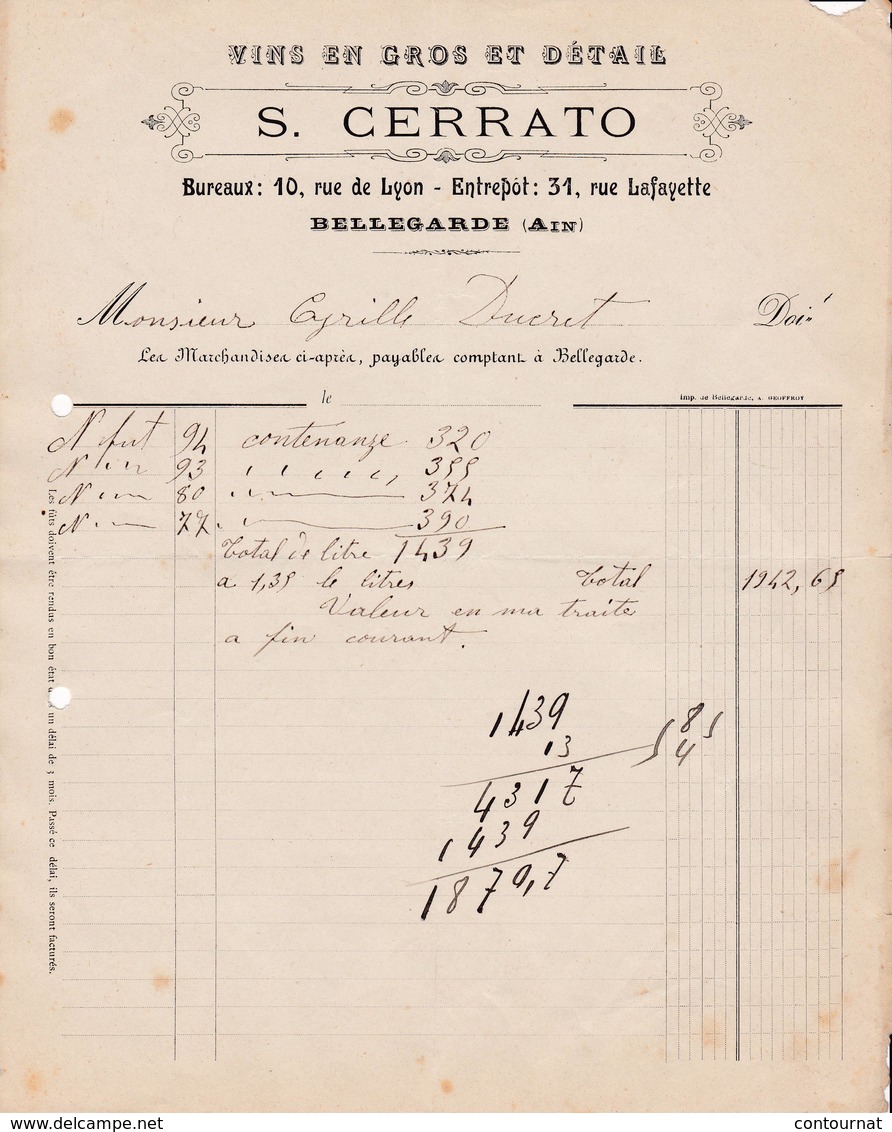 VINS EN GROS ET DÉTAIL
S. CERRATO
Bureaux: 10, rue de Lyon - Entrepôt: 31, rue Lafayette
BELLEGARDE (AIN)
Monsieur Cyrille Ducret Doit
Les Marchandises ci-après, payables comptant à Bellegarde.
le
Imp. de Bellegarde, A. GEOFFROY
N fut 94 contenanze 320
N " " 93 " " " " , 355
N " 80 " 374
N " 77 " 390
Total de litre 1439
a 1,35 le litres Total 1942,65
Valeur en ma traite
a fin courant.
Les fûts doivent être rendus en bon état un délai de 3 mois. Passé ce délai, ils seront facturés.
1439
13
4317
1439
1879,7
delcampe.net
contournat